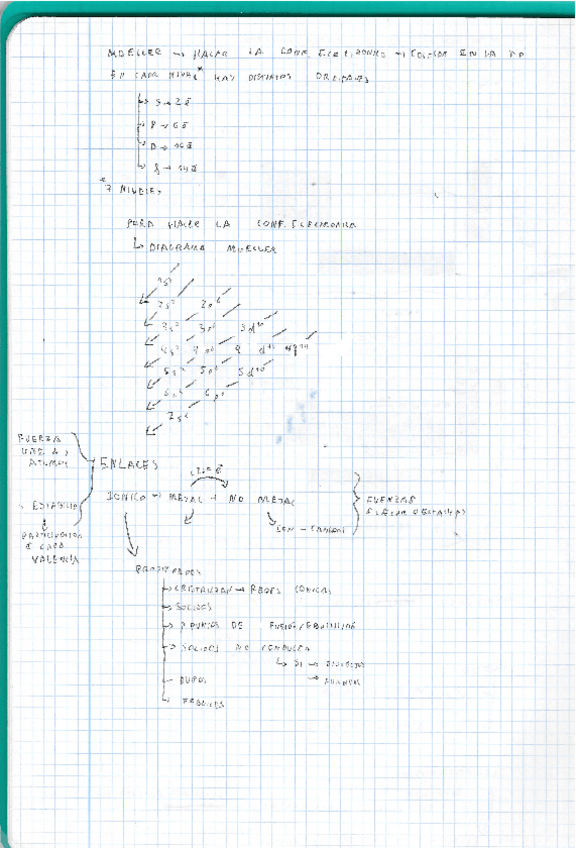 MOELLER → HACER LA CONF. ELECTRONICA → EN LA
EN CADA NIVEL* HAY DISTINTOS ORBITALES
S → 2ē
P → 6ē
D → 10ē
f → 14ē
*7 NIVELES
PARA HACER LA CONF. ELECTRONICA
↳ DIAGRAMA MOELLER
1s²
2s² 2p⁶
3s² 3p⁶ 3d¹⁰
4s² 4p⁶ 4 d¹⁰ 4f¹⁴
5s² 5p⁶ 5d¹⁰
6s² 6p⁶
7s²
FUERZA
UNE A
ATOMOS
ESTABILIDAD
PARTICIPACION
CAPA
VALENCIA
ENLACES
IONICO → METAL + NO METAL
FUERZAS
ELECTROESTATICAS
PROPIEDADES
CRISTALIZAN → REDES IONICAS
SOLIDOS
PUNTOS DE FUSION/EBULLICION
SOLIDOS NO CONDUCEN
↳ SI → DISUELTOS
→ FUNDIDOS
DUROS
FRAGILES